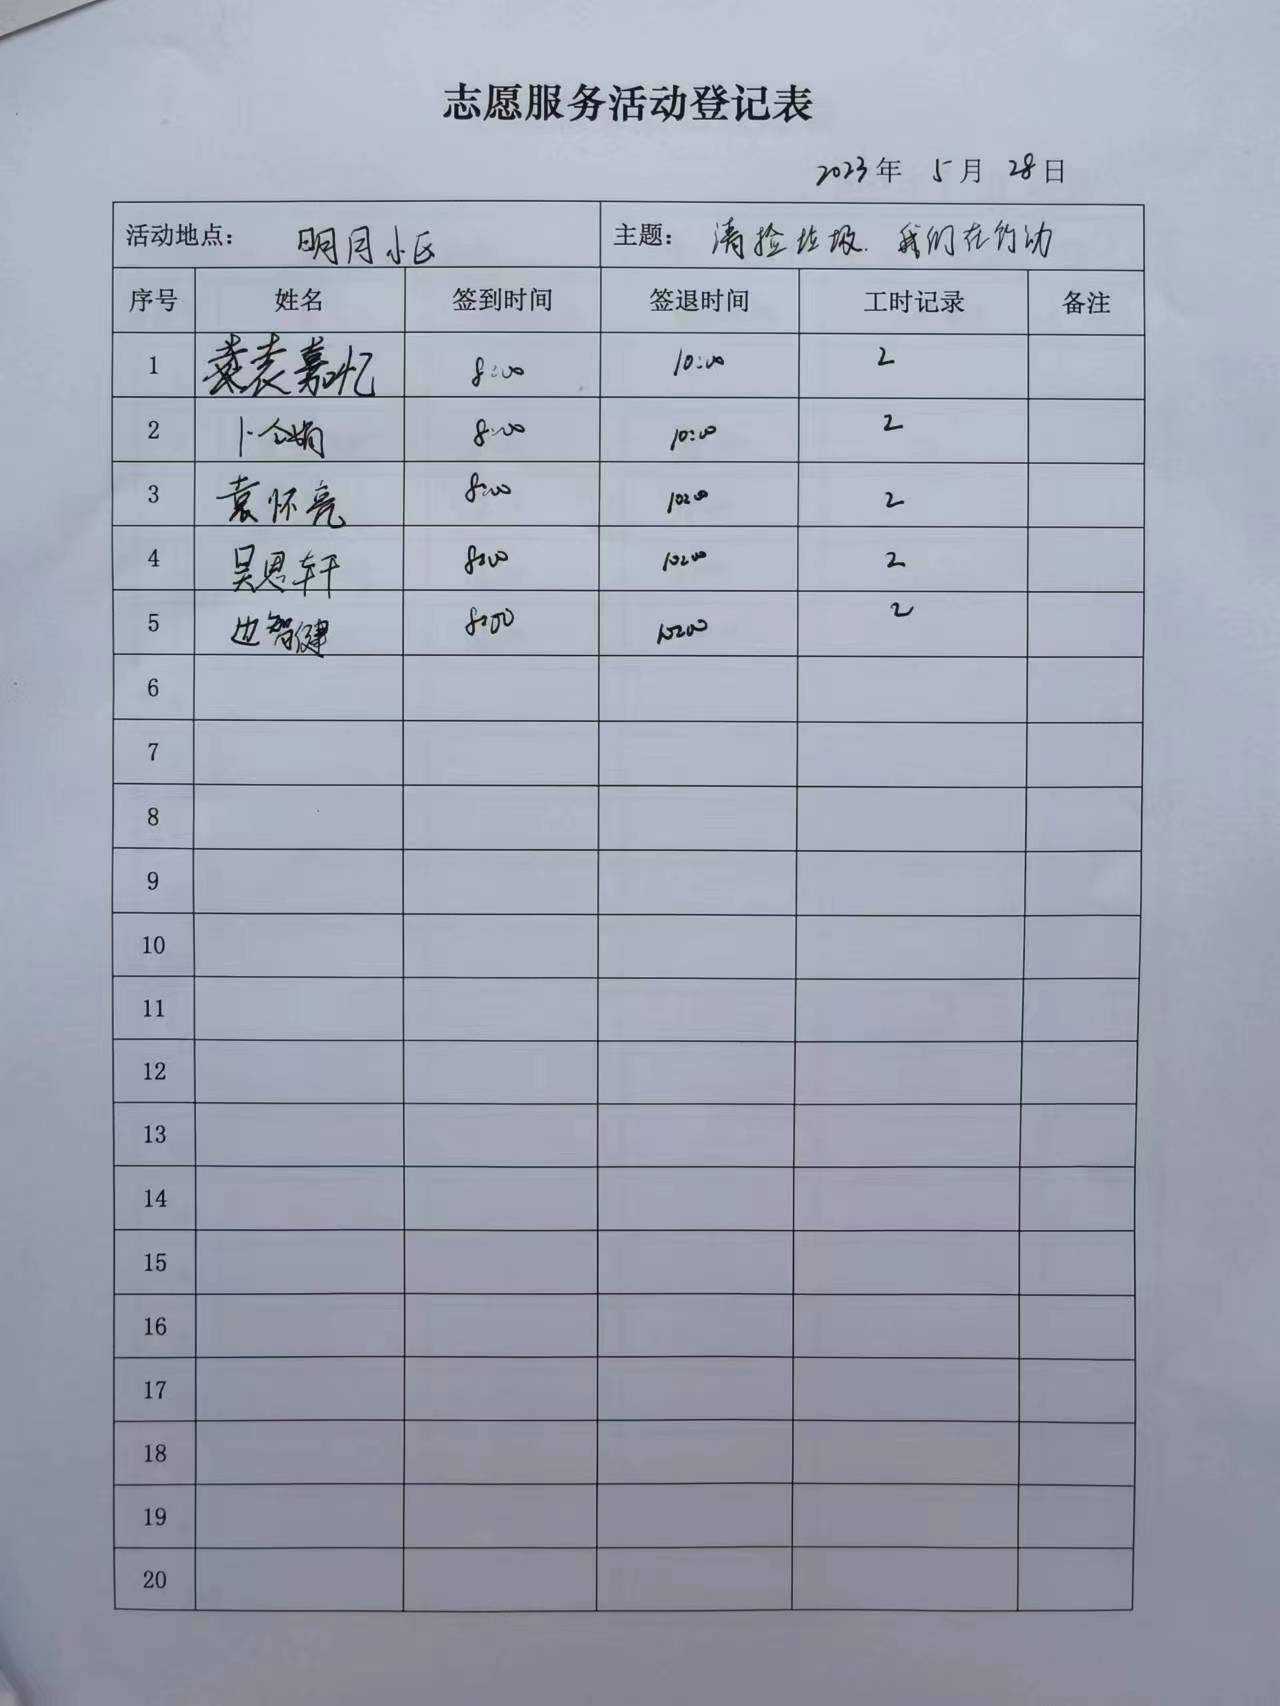 志愿服务活动登记表
2023年 5月 28日
活动地点： 明月小区 主题： 清捡垃圾.我们在行动
序号 姓名 签到时间 签退时间 工时记录 备注
1 袁嘉忆 8:00 10:00 2
2 8:00 10:00 2
3 袁怀亮 8:00 10:00 2
4 吴恩轩 8:00 10:00 2
5 边智健 8:00 10:00 2
6
7
8
9
10
11
12
13
14
15
16
17
18
19
20